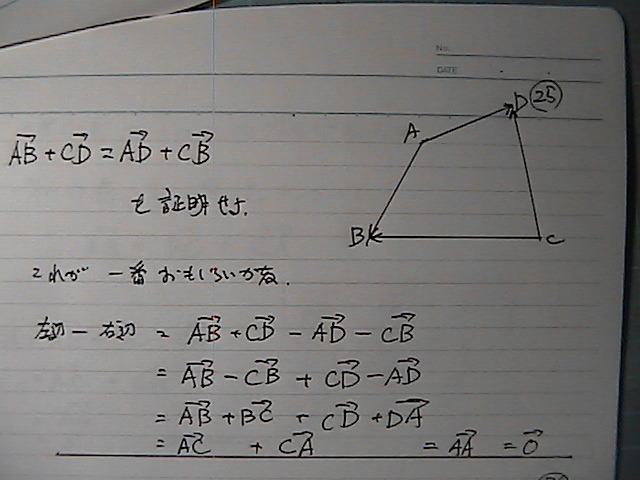 No.
DATE
D ㉕
A
B
C
$\overrightarrow{AB} + \overrightarrow{CD} = \overrightarrow{AD} + \overrightarrow{CB}$
を証明せよ.
これが 一番 おもしろいかな.
左辺 − 右辺 = $\overrightarrow{AB} + \overrightarrow{CD} - \overrightarrow{AD} - \overrightarrow{CB}$
= $\overrightarrow{AB} - \overrightarrow{CB} + \overrightarrow{CD} - \overrightarrow{AD}$
= $\overrightarrow{AB} + \overrightarrow{BC} + \overrightarrow{CD} + \overrightarrow{DA}$
= $\overrightarrow{AC} + \overrightarrow{CA} = \overrightarrow{AA} = \overrightarrow{0}$